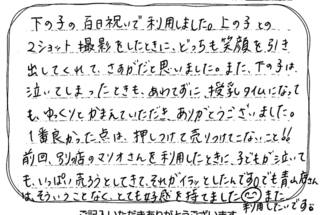 下の子の百日祝いで利用しました。上の子との
2ショット撮影をしたときに、どっちも笑顔を引き
出してくれて、さすがだと思いました。また、下の子は
泣いてしまったときも、あわてずに、授乳タイムになって
も、ゆっくりとかまえていただき、ありがとうございました。
1番良かった点は、押しつけて売りつけてこないこと!!
前回、別の店のマリオさんを利用したときに、子どもが泣いて
も、いっぱい売ろうとしてきて、それがイラッとしたんですが、でも青山店さん
は、そういうことなく、とても好感を持てました また
利用したいです。
ご記入いただきありがとうございます